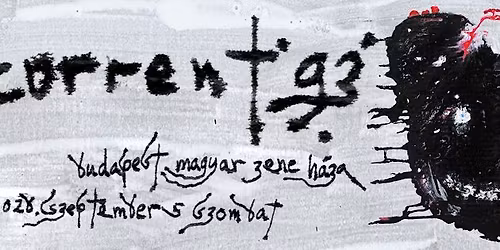 current 93
budapest, magyar zene háza
szeptember 5 szombat